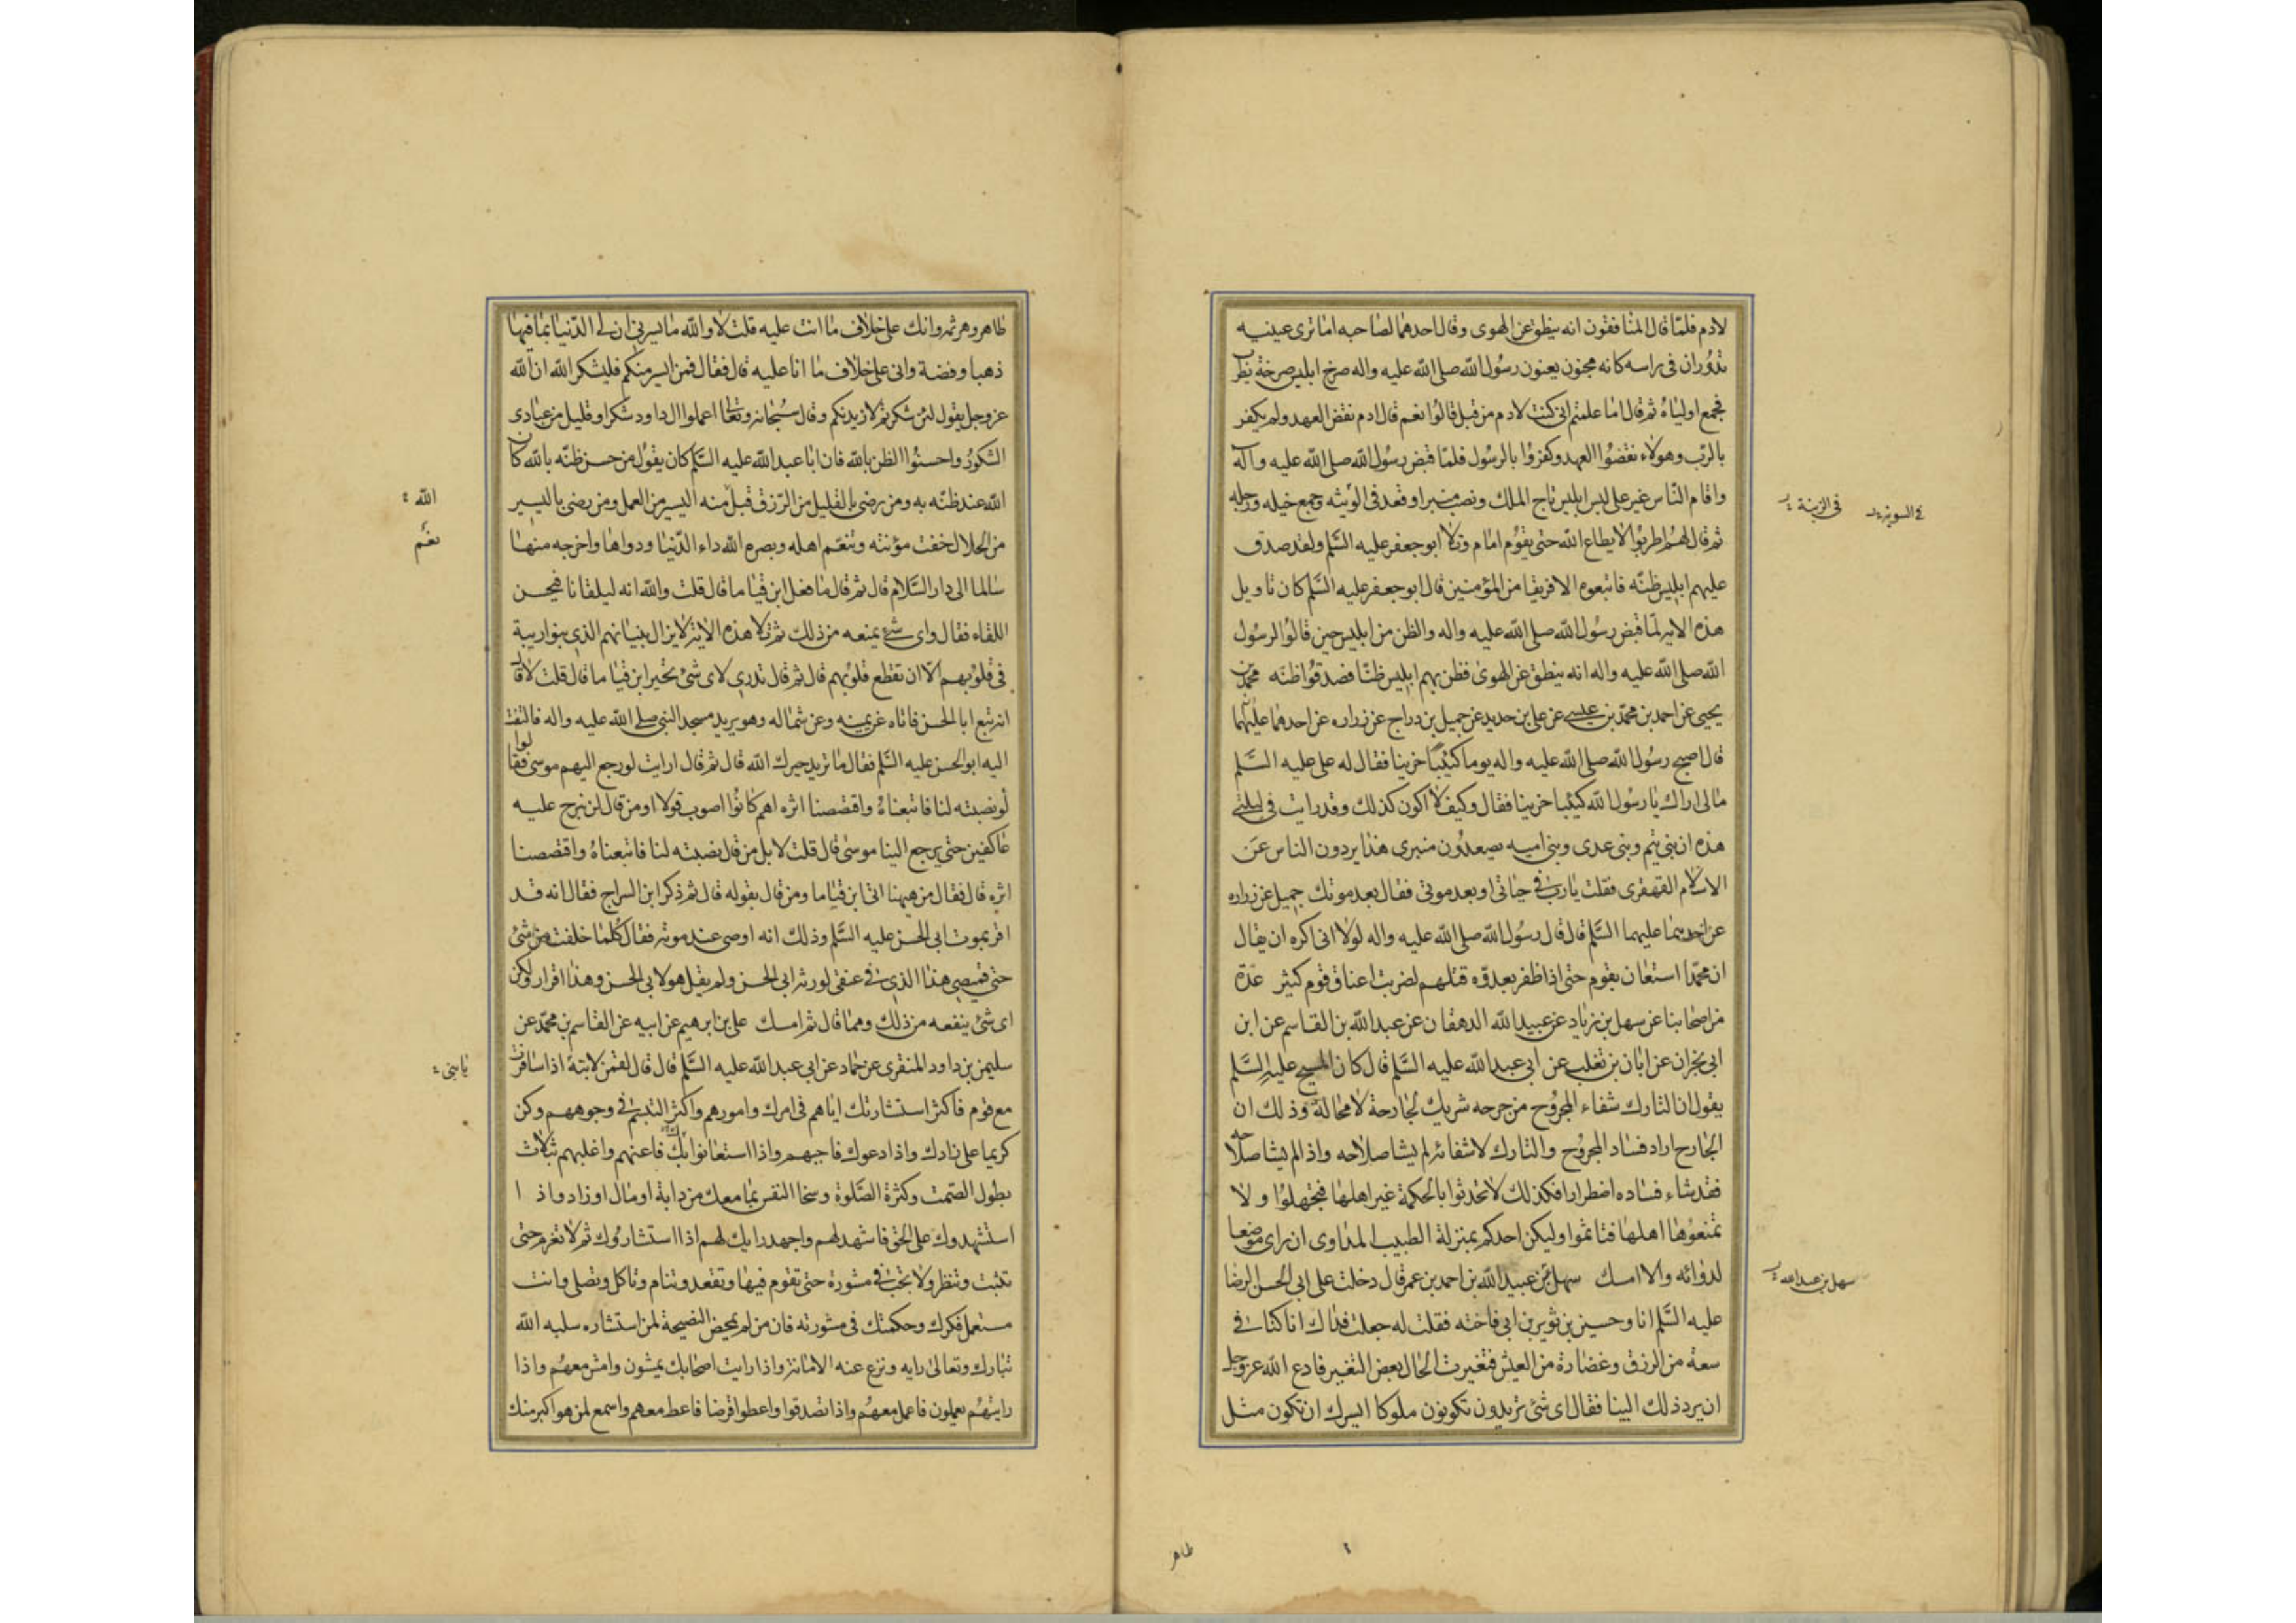 لادم فلمّا قال المنافقون انه ينطق عن الهوى وقال احدهما لصاحبه اما ترى عينيه
تدوران في راسه كانه مجنون يعنون رسول الله صلى الله عليه واله صرخ ابليس صرخة يطرب
فجمع اولياءه ثم قال اما علمتم انى كنت لادم من قبل قالوا نعم قال ادم نقض العهد ولم يكفر
بالرب وهولاء نقضوا العهد وكفروا بالرسول فلمّا قبض رسول الله صلى الله عليه وآله
واقام الناس غير على لبس ابليس تاج الملك ونصب منبرا وقعد في الوثبه وجمع خيله ورجله
ثم قال لهم اطربوا لا يطاع الله حتى يقوم امام وتلا ابو جعفر عليه السّلم ولقد صدق
عليهم ابليس ظنّه فاتبعوه الا فريقا من المؤمنين قال ابو جعفر عليه السّلم كان تاويل
هذه الاية لمّا قبض رسول الله صلى الله عليه واله والظن من ابليس حين قالوا لرسول
الله صلى الله عليه واله انه ينطق عن الهوى فظن بهم ابليس ظنّا فصدقوا ظنّه محمّد بن
يحيى عن احمد بن محمّد بن عيسى عن على بن حديد عن جميل بن دراج عن زراره عن احدهما عليهما
قال اصبح رسول الله صلى الله عليه واله يوما كئيبا حزينا فقال له على عليه السّلم
مالى اراك يا رسول الله كئيبا حزينا فقال وكيف لا اكون كذلك وقد رايت في ليلتي
هذه ان بنى تيم وبنى عدى وبنى اميه يصعدون منبرى هذا يردون الناس عن
الاسلام القهقرى فقلت يا رب في حياتى او بعد موتى فقال بعد موتك جميل عن زراره
عن احدهما عليهما السّلم قال قال رسول الله صلى الله عليه واله لولا انى اكره ان يقال
ان محمّدا استعان بقوم حتى اذا ظفر بعدوّه قتلهم لضربت اعناق قوم كثير عدّة
من اصحابنا عن سهل بن زياد عن عبيد الله الدهقان عن عبد الله بن القاسم عن ابن
ابى نجران عن ابان بن تغلب عن ابى عبد الله عليه السّلم قال كان المسيح عليه السّلم
يقول ان التارك شفاء المجروح من جرحه شريك لجارحة لا محالة وذلك ان
الجارح اراد فساد المجروح والتارك لاشفائه لم يشا صلاحه واذا لم يشا صلاحه
فقد شاء فساده اضطرارا فكذلك لا تحدثوا بالحكمة غير اهلها فتجهلوا ولا
تمنعوها اهلها فتاثموا وليكن احدكم بمنزلة الطبيب المداوى ان راى موضعا
لدوائه والا امسك سهل عن عبيد الله بن احمد بن عمر قال دخلت على ابى الحسن الرضا
عليه السّلم انا وحسين بن ثوير بن ابى فاخته فقلت له جعلت فداك انا كنا في
سعة من الرزق وغضارة من العيش فتغيرت الحال بعض التغيير فادع الله عز وجل
ان يرد ذلك الينا فقال اى شئ تريدون تكونون ملوكا ايسرك ان تكون مثل
في الزينة
سهل بن عبد الله
طاهر
طاهر وهرثمه وانك على خلاف ما انت عليه قلت لا والله ما يسرنى ان لى الدّنيا بما فيها
ذهبا وفضة وانى على خلاف ما انا عليه قال فقال فمن ايسر منكم فليشكر الله ان الله
عز وجل يقول لئن شكرتم لازيدنكم وقال سبحانه وتعالى اعملوا ال داود شكرا وقليل من عبادى
الشكور واحسنوا الظن بالله فان ابا عبد الله عليه السّلم كان يقول من حسن ظنّه بالله كان
الله عند ظنّه به ومن رضى بالقليل من الرّزق قبل منه اليسير من العمل ومن رضى باليسير
من الحلال خفت مؤنته وتنعّم اهله وبصره الله داء الدّنيا ودواها واخرجه منها
سالما الى دار السّلام قال ثم قال ما فعل ابن قياما قال قلت والله انه ليلقانا فيحسن
اللقاء فقال واى شئ يمنعه من ذلك ثم تلا هذه الاية لا يزال بنيانهم الذى بنوا ريبة
في قلوبهم الا ان تقطع قلوبهم قال ثم قال تدرى لاى شئ تحير ابن قياما قال قلت لا قال
انه تبع ابا الحسن فاتاه عن يمينه وعن شماله وهو يريد مسجد النبى صلى الله عليه واله فالتفت
اليه ابو الحسن عليه السّلم فقال ما تريد حيرك الله قال ثم قال ارايت لو رجع اليهم موسى فقالوا
لو نصبته لنا فاتبعناه واقتصصنا اثره اهم كانوا اصوب قولا او من قال لن نبرح عليه
عاكفين حتى يرجع الينا موسى قال قلت لا بل من قال نصبته لنا فاتبعناه واقتصصنا
اثره قال فقال من هيهنا اتى ابن قياما ومن قال بقوله قال ثم ذكر ابن السراج فقال انه قد
اقر بموت ابى الحسن عليه السّلم وذلك انه اوصى عند موته فقال كلما خلفت من شئ
حتى قميصى هذا الذى في عنقى لورثه ابى الحسن ولم يقل هو لابى الحسن وهذا اقرار ولكن
اى شئ ينفعه من ذلك ومما قال ثم امسك على بن ابرهيم عن ابيه عن القاسم بن محمّد عن
سليمن بن داود المنقرى عن حماد عن ابى عبد الله عليه السّلم قال قال لقمن لابنه اذا سافرت
مع قوم فاكثر استشارتك اياهم في امرك وامورهم واكثر التبسّم في وجوههم وكن
كريما على زادك واذا دعوك فاجبهم واذا استعانوا بك فاعنهم واغلبهم بثلاث
بطول الصّمت وكثرة الصّلوة وسخا النفس بما معك من دابة او مال او زاد واذا
استشهدوك على الحق فاشهد لهم واجهد رايك لهم اذا استشاروك ثم لا تعزم حتى
تثبت وتنظر ولا تجب في مشورة حتى تقوم فيها وتقعد وتنام وتاكل وتصلى وانت
مستعمل فكرك وحكمتك في مشورته فان من لم يمحض النصيحة لمن استشاره سلبه الله
تبارك وتعالى رايه ونزع عنه الامانة واذا رايت اصحابك يمشون وامش معهم واذا
رايتهم يعملون فاعمل معهم واذا تصدقوا واعطوا قرضا فاعط معهم واسمع لمن هو اكبر منك
الله
نعم
يا بنى